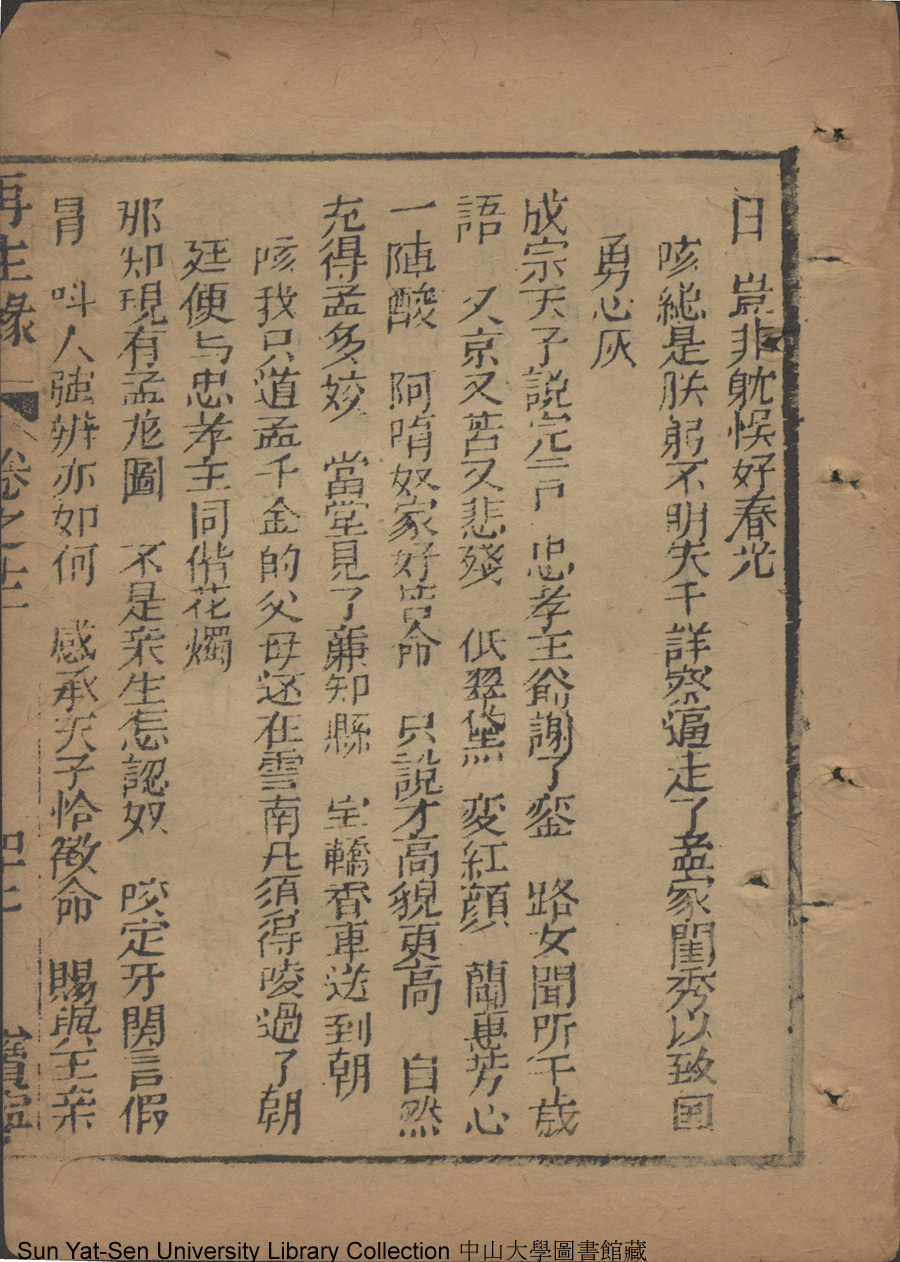 日 豈非躭悞好春光
咳緃是朕躬不明失于詳察逼走了孟家閨秀以致国
勇心灰
成宗天子說完言 忠孝王爺謝了鑾 路女聞所千歲
語 又京又苦又悲殘 低翠黛 変紅顔 蘭蕙芳心
一陣酸 阿唷奴家好苦命 只說才高貌更高 自然
充得孟多姣 當堂見了蔴知縣 宝轎香車送到朝
咳我只道孟千金的父母还在雲南凡須得㖫過了朝
廷便与忠孝王同偕花燭
那知現有孟龙圖 不是亲生怎認奴 咬定牙関言假
冐 呌人強辨亦如何 感承天子恰敇命 賜與王亲
再生緣 卷之十二 四十二 寳寧
Sun Yat-Sen University Library Collection 中山大學圖書館藏